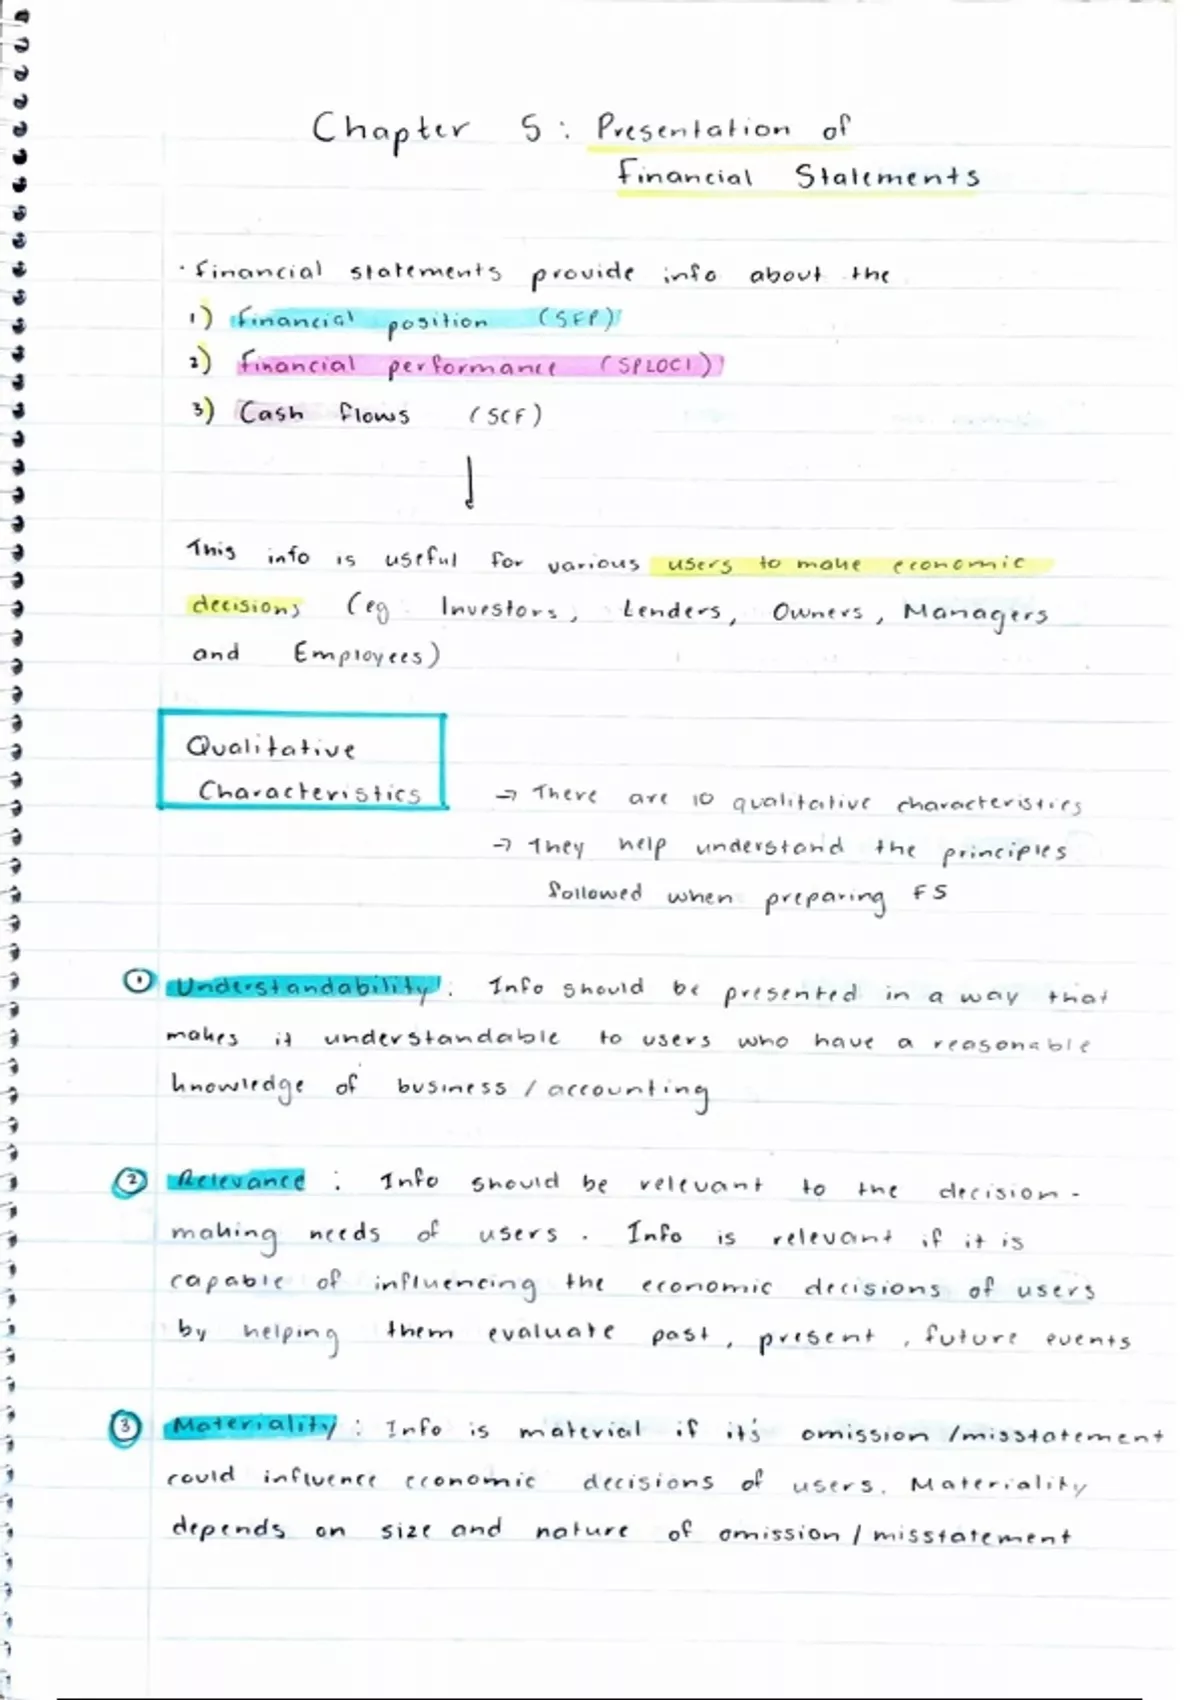 Chapter 5: Presentation of
Financial Statements
· Financial statements provide info about the
1) Financial position (SFP)
2) Financial performance (SPLOCI)
3) Cash flows (SCF)
This info is useful for various users to make economic
decisions (eg. Investors, Lenders, Owners, Managers
and Employees)
Qualitative
Characteristics
→ There are 10 qualitative characteristics
→ They help understand the principles
followed when preparing FS
① Understandability: Info should be presented in a way that
makes it understandable to users who have a reasonable
knowledge of business / accounting
② Relevance : Info should be relevant to the decision-
making needs of users. Info is relevant if it is
capable of influencing the economic decisions of users
by helping them evaluate past, present, future events
③ Materiality : Info is material if it's omission /misstatement
could influence economic decisions of users. Materiality
depends on size and nature of omission / misstatement